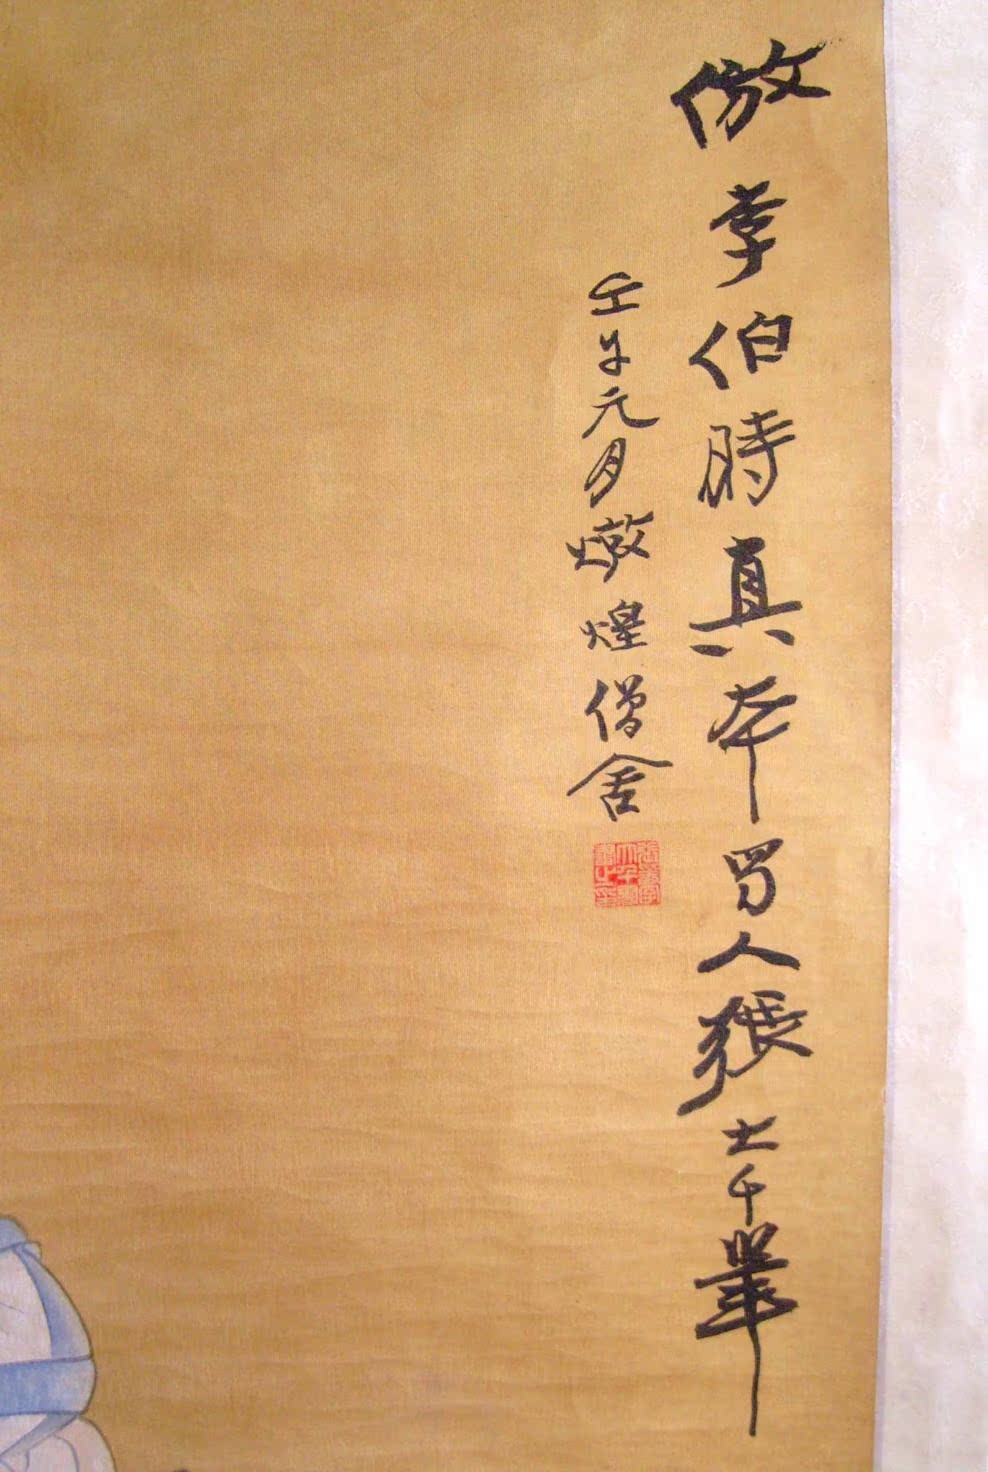 倣李伯時真本蜀人張大千筆
壬午元月燉煌僧舍